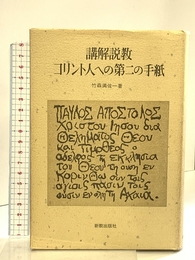 講解説教
コリント人への第二の手紙
竹森満佐一著
ΠΑΥΛΟΣ ΑΠΟΣΤΟΛΟΣ
Χριστου Ιησου δια
θεληματος Θεου
και Τιμοθεος ο
αδελφος τη εκκλησια
του Θεου τη ουση εν
Κορινθω συν τοις
αγιοις πασιν τοις
ουσιν εν ολη τη Αχαια.
新教出版社